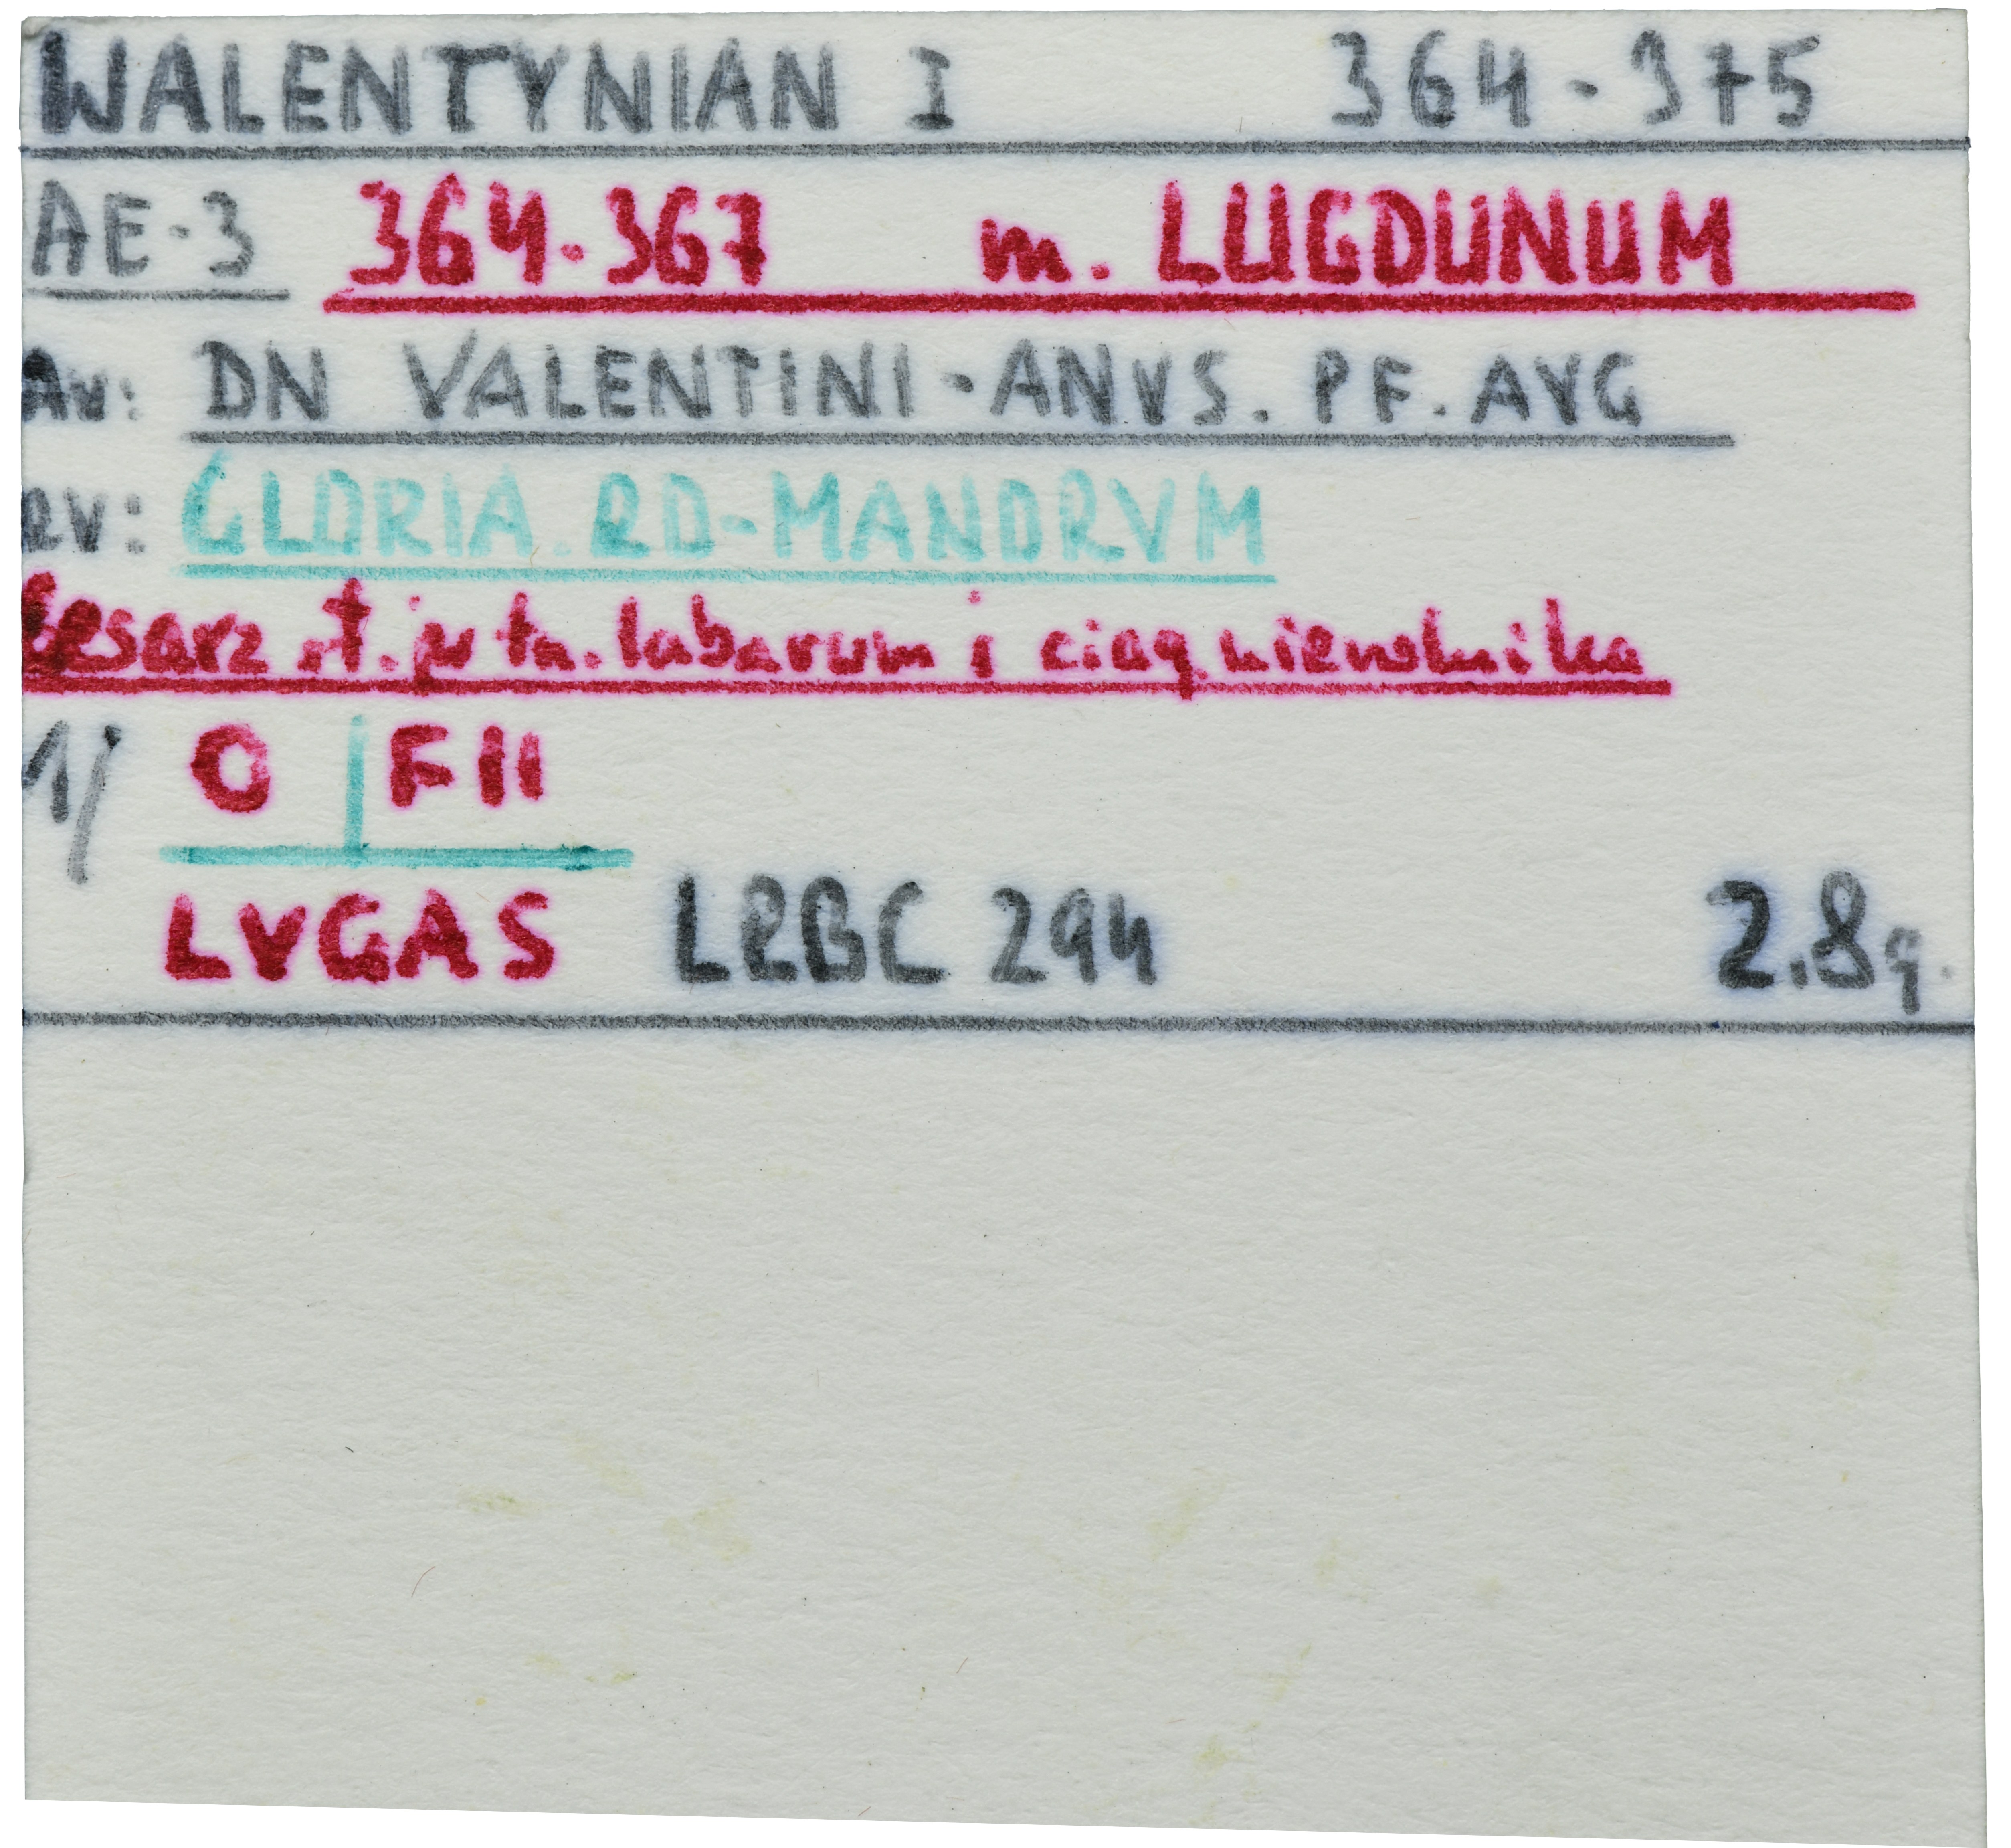 WALENTYNIAN I 364-375
AE-3 364-367 m. LUGDUNUM
Av: DN VALENTINI-ANVS. PF. AVG
RV: GLORIA. RO-MANORVM
Cesarz st. tn. labarum i ciąg niewolnika
1/ O | F II
LVGAS LRBC 294 2.8g.